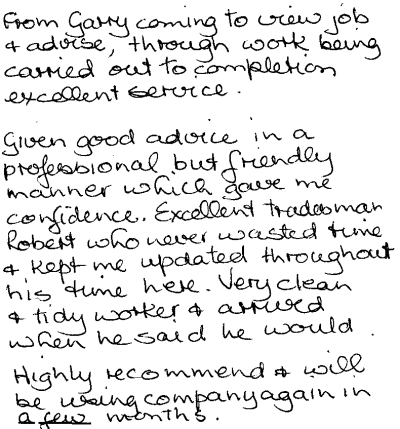 From Garry coming to view job
& advise, through work being
carried out to completion
excellent service.
Given good advice in a
professional but friendly
manner which gave me
confidence. Excellent tradesman
Robert who never wasted time
& kept me updated throughout
his time here. Very clean
& tidy worker & arrived
when he said he would.
Highly recommend & will
be using company again in
a few months.